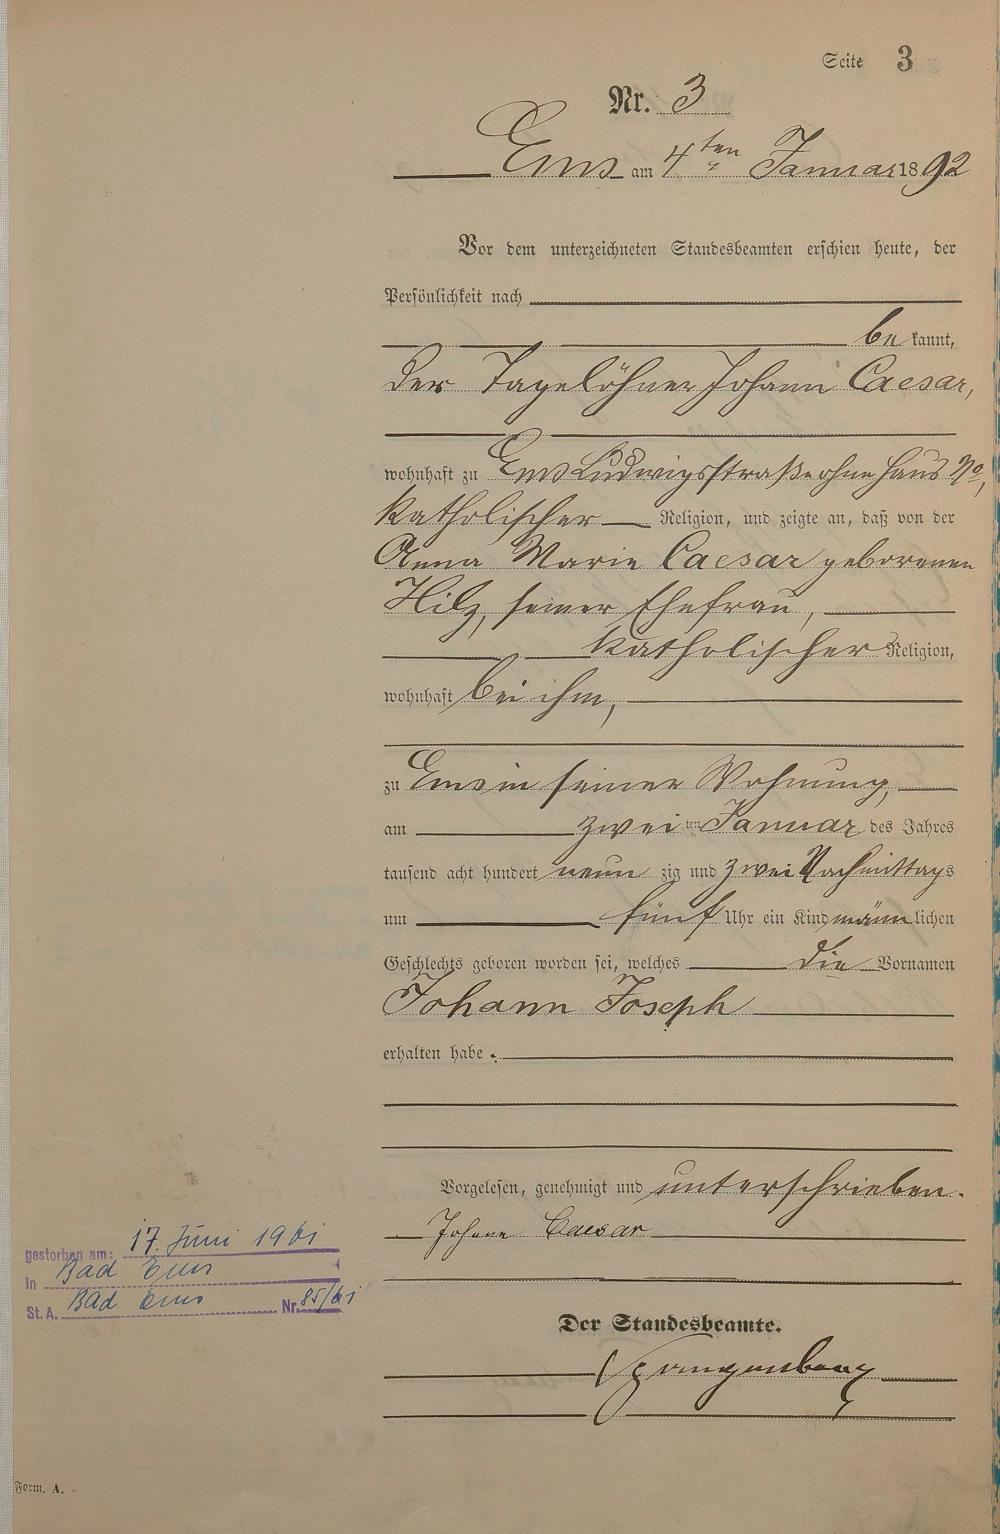 Seite 3
Nr. 3
Ems am 4ten Januar 1892
Vor dem unterzeichneten Standesbeamten erschien heute, der
Persönlichkeit nach
be kannt,
der Tagelöhner Johann Caesar,
wohnhaft zu Ems Ludwigsstraße ohne Haus No,
katholischer Religion, und zeigte an, daß von der
Anna Marie Caesar geborenen
Hilz, seiner Ehefrau,
katholischer Religion,
wohnhaft bei ihm,
zu Ems in seiner Wohnung,
am zwei ten Januar des Jahres
tausend acht hundert neun zig und zwei Nachmittags
um fünf Uhr ein Kind männlichen
Geschlechts geboren worden sei, welches die Vornamen
Johann Joseph
erhalten habe.
Vorgelesen, genehmigt und unterschrieben.
Johann Caesar
gestorben am: 17. Juni 1961
in Bad Ems
St. A. Bad Ems Nr. 85/61
Der Standesbeamte.
Spangenberg
Form. A.